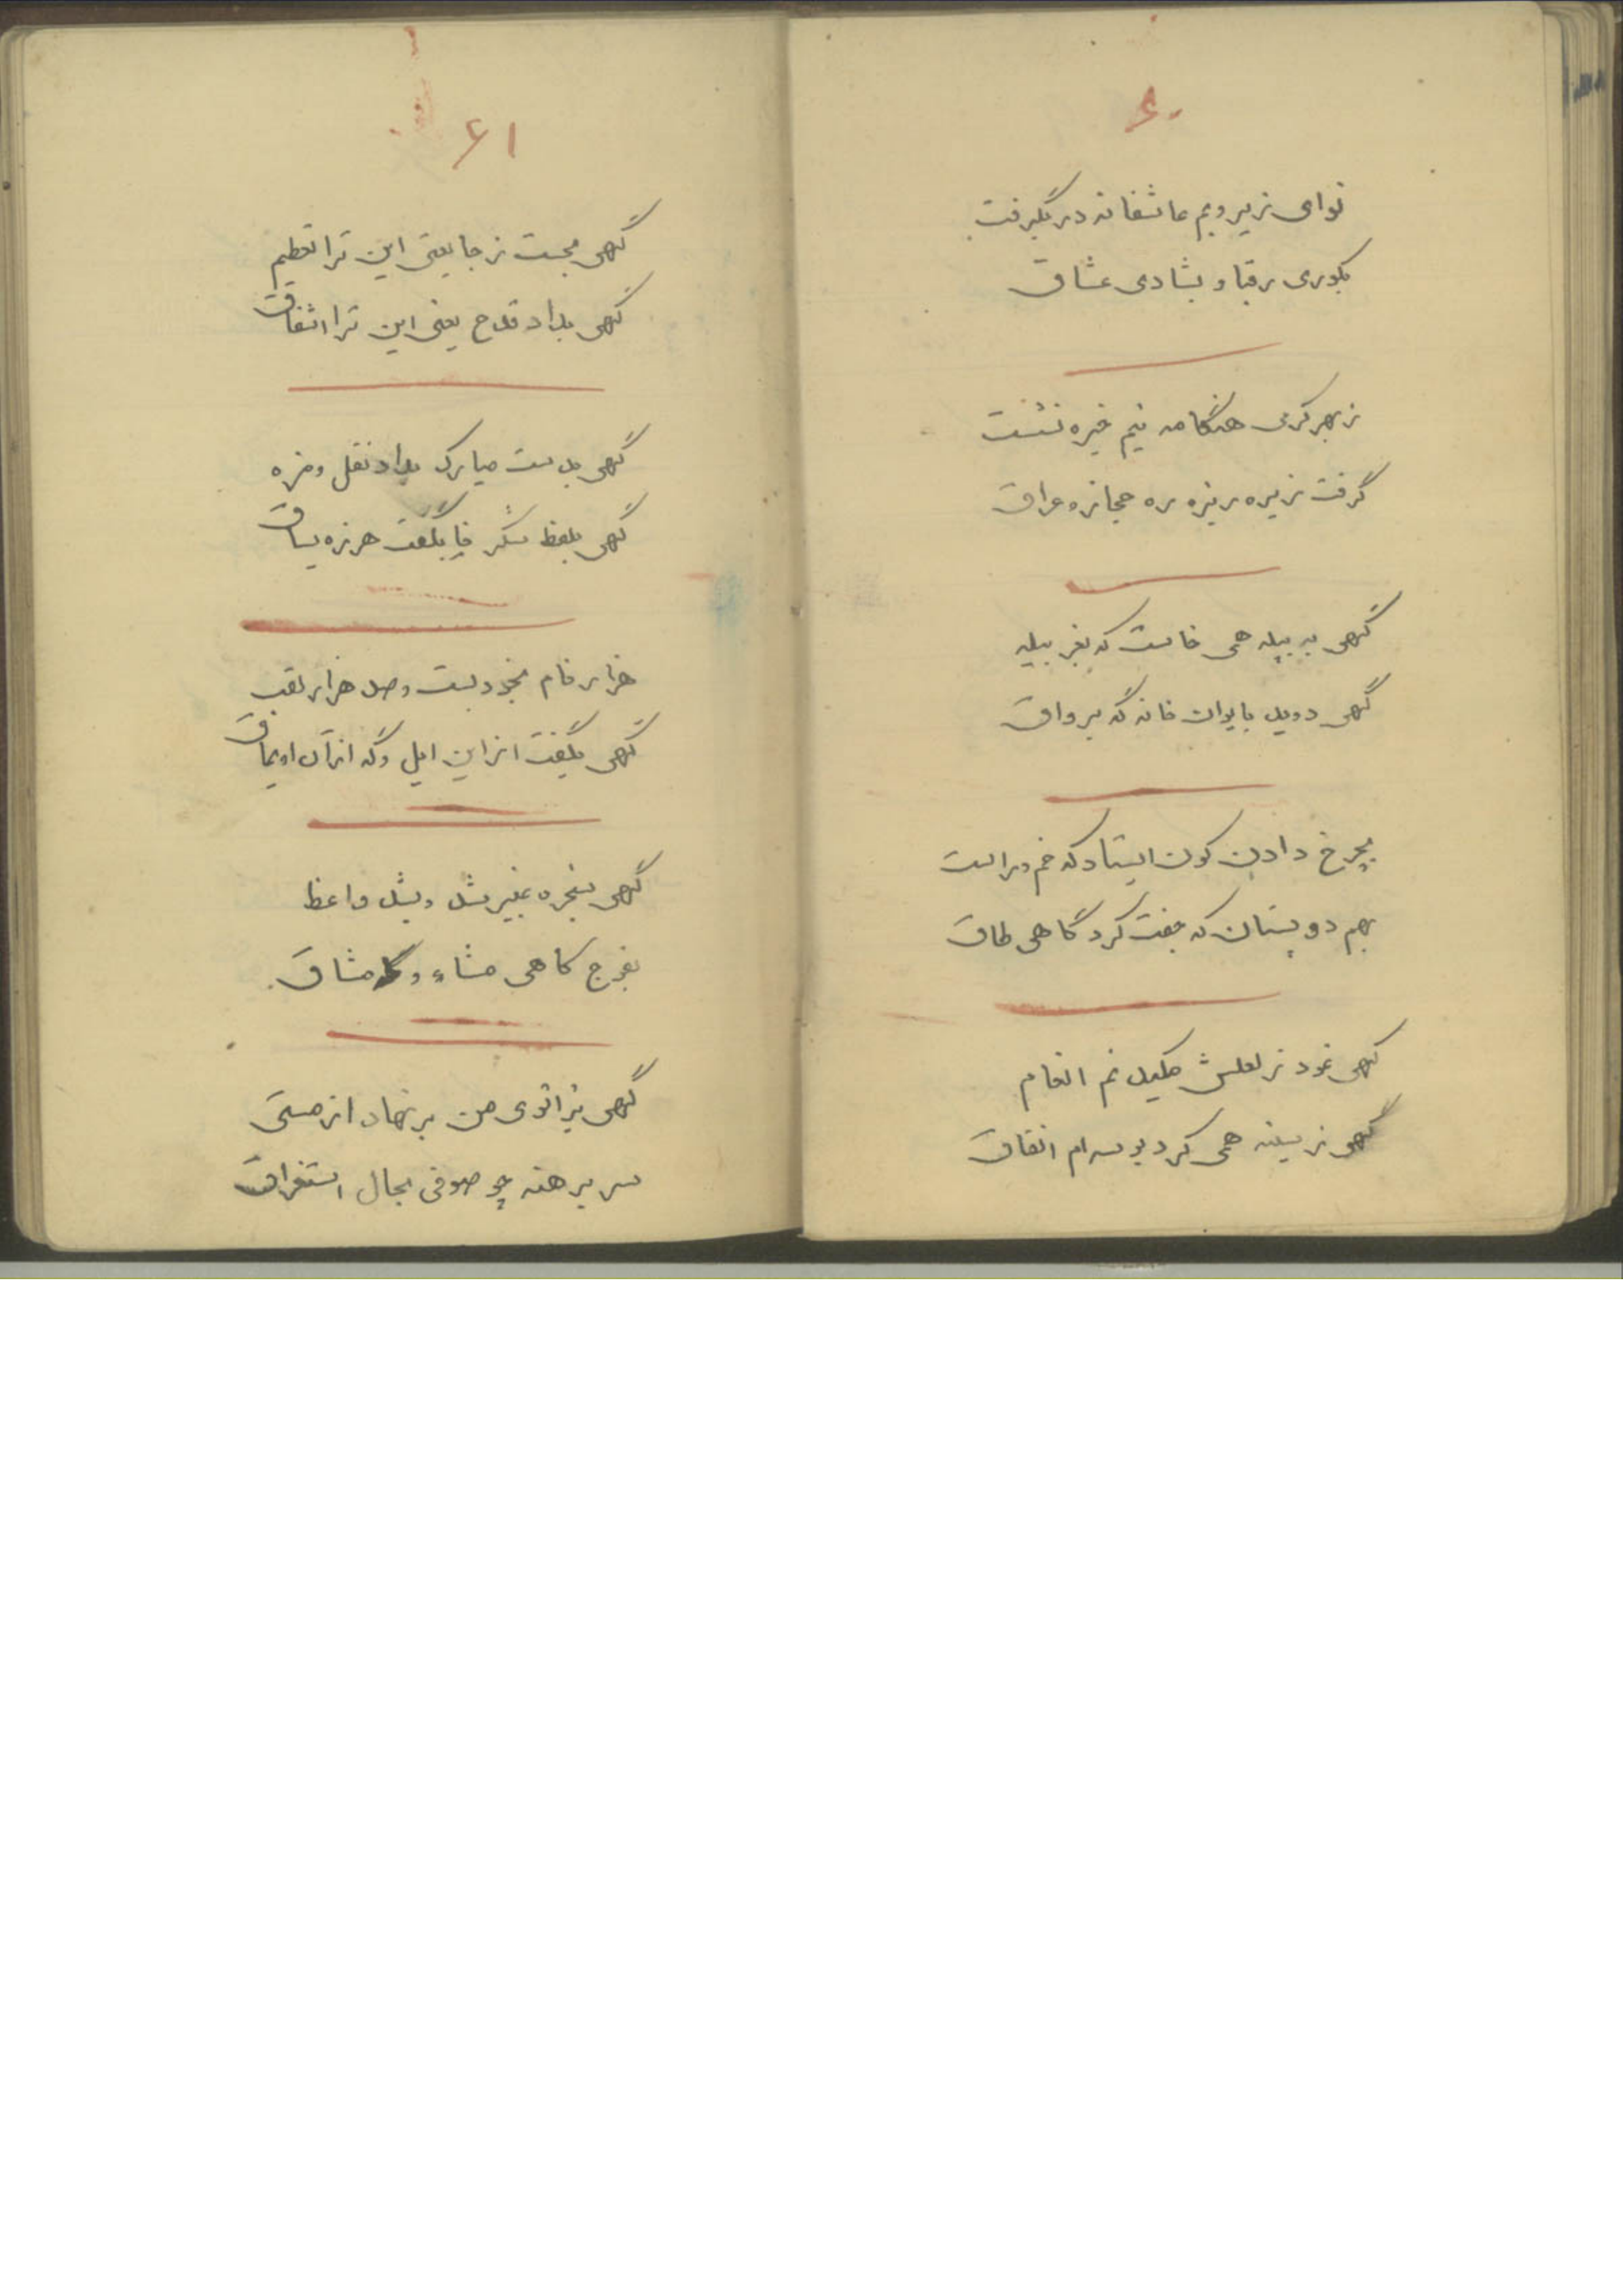 ۶۰
نوای زیر و بم عاشقانه در بگرفت
بکوری رقبا و بشادی عشاق
ز بهر گرمی هنگامه نیم خیره نشست
گرفت زیره بریزه ره حجاز و عراق
گهی به بیله همی خاست که بغربیله
گهی دوید بایوان خانه گه برواق
بچرخ دادن کون ایستاد که خم و راست
بهم دو پستان که جفت کرد گاهی طاق
گهی نمود ز لعلش مکیدنم انعام
گهی ز سینه همی کرد بوسه‌ام انفاق
۶۱
گهی بجست ز جا یعنی این ترا تعظیم
گهی بداد قدح یعنی این ترا اشفاق
گهی بدست مبارک بداد نقل و مزه
گهی بلفظ شکر خا بگفت هرزه یساق
هزار نام بخود بست و صد هزار لقب
گهی بگفت از این ایل و گه از آن اویماق
گهی بپنجره تغییر شد و بشد واعظ
بفرج گاهی مشاء و گه مشاق
گهی بزانوی من بر نهاد از مستی
سر برهنه چو صوفی بحال استغراق